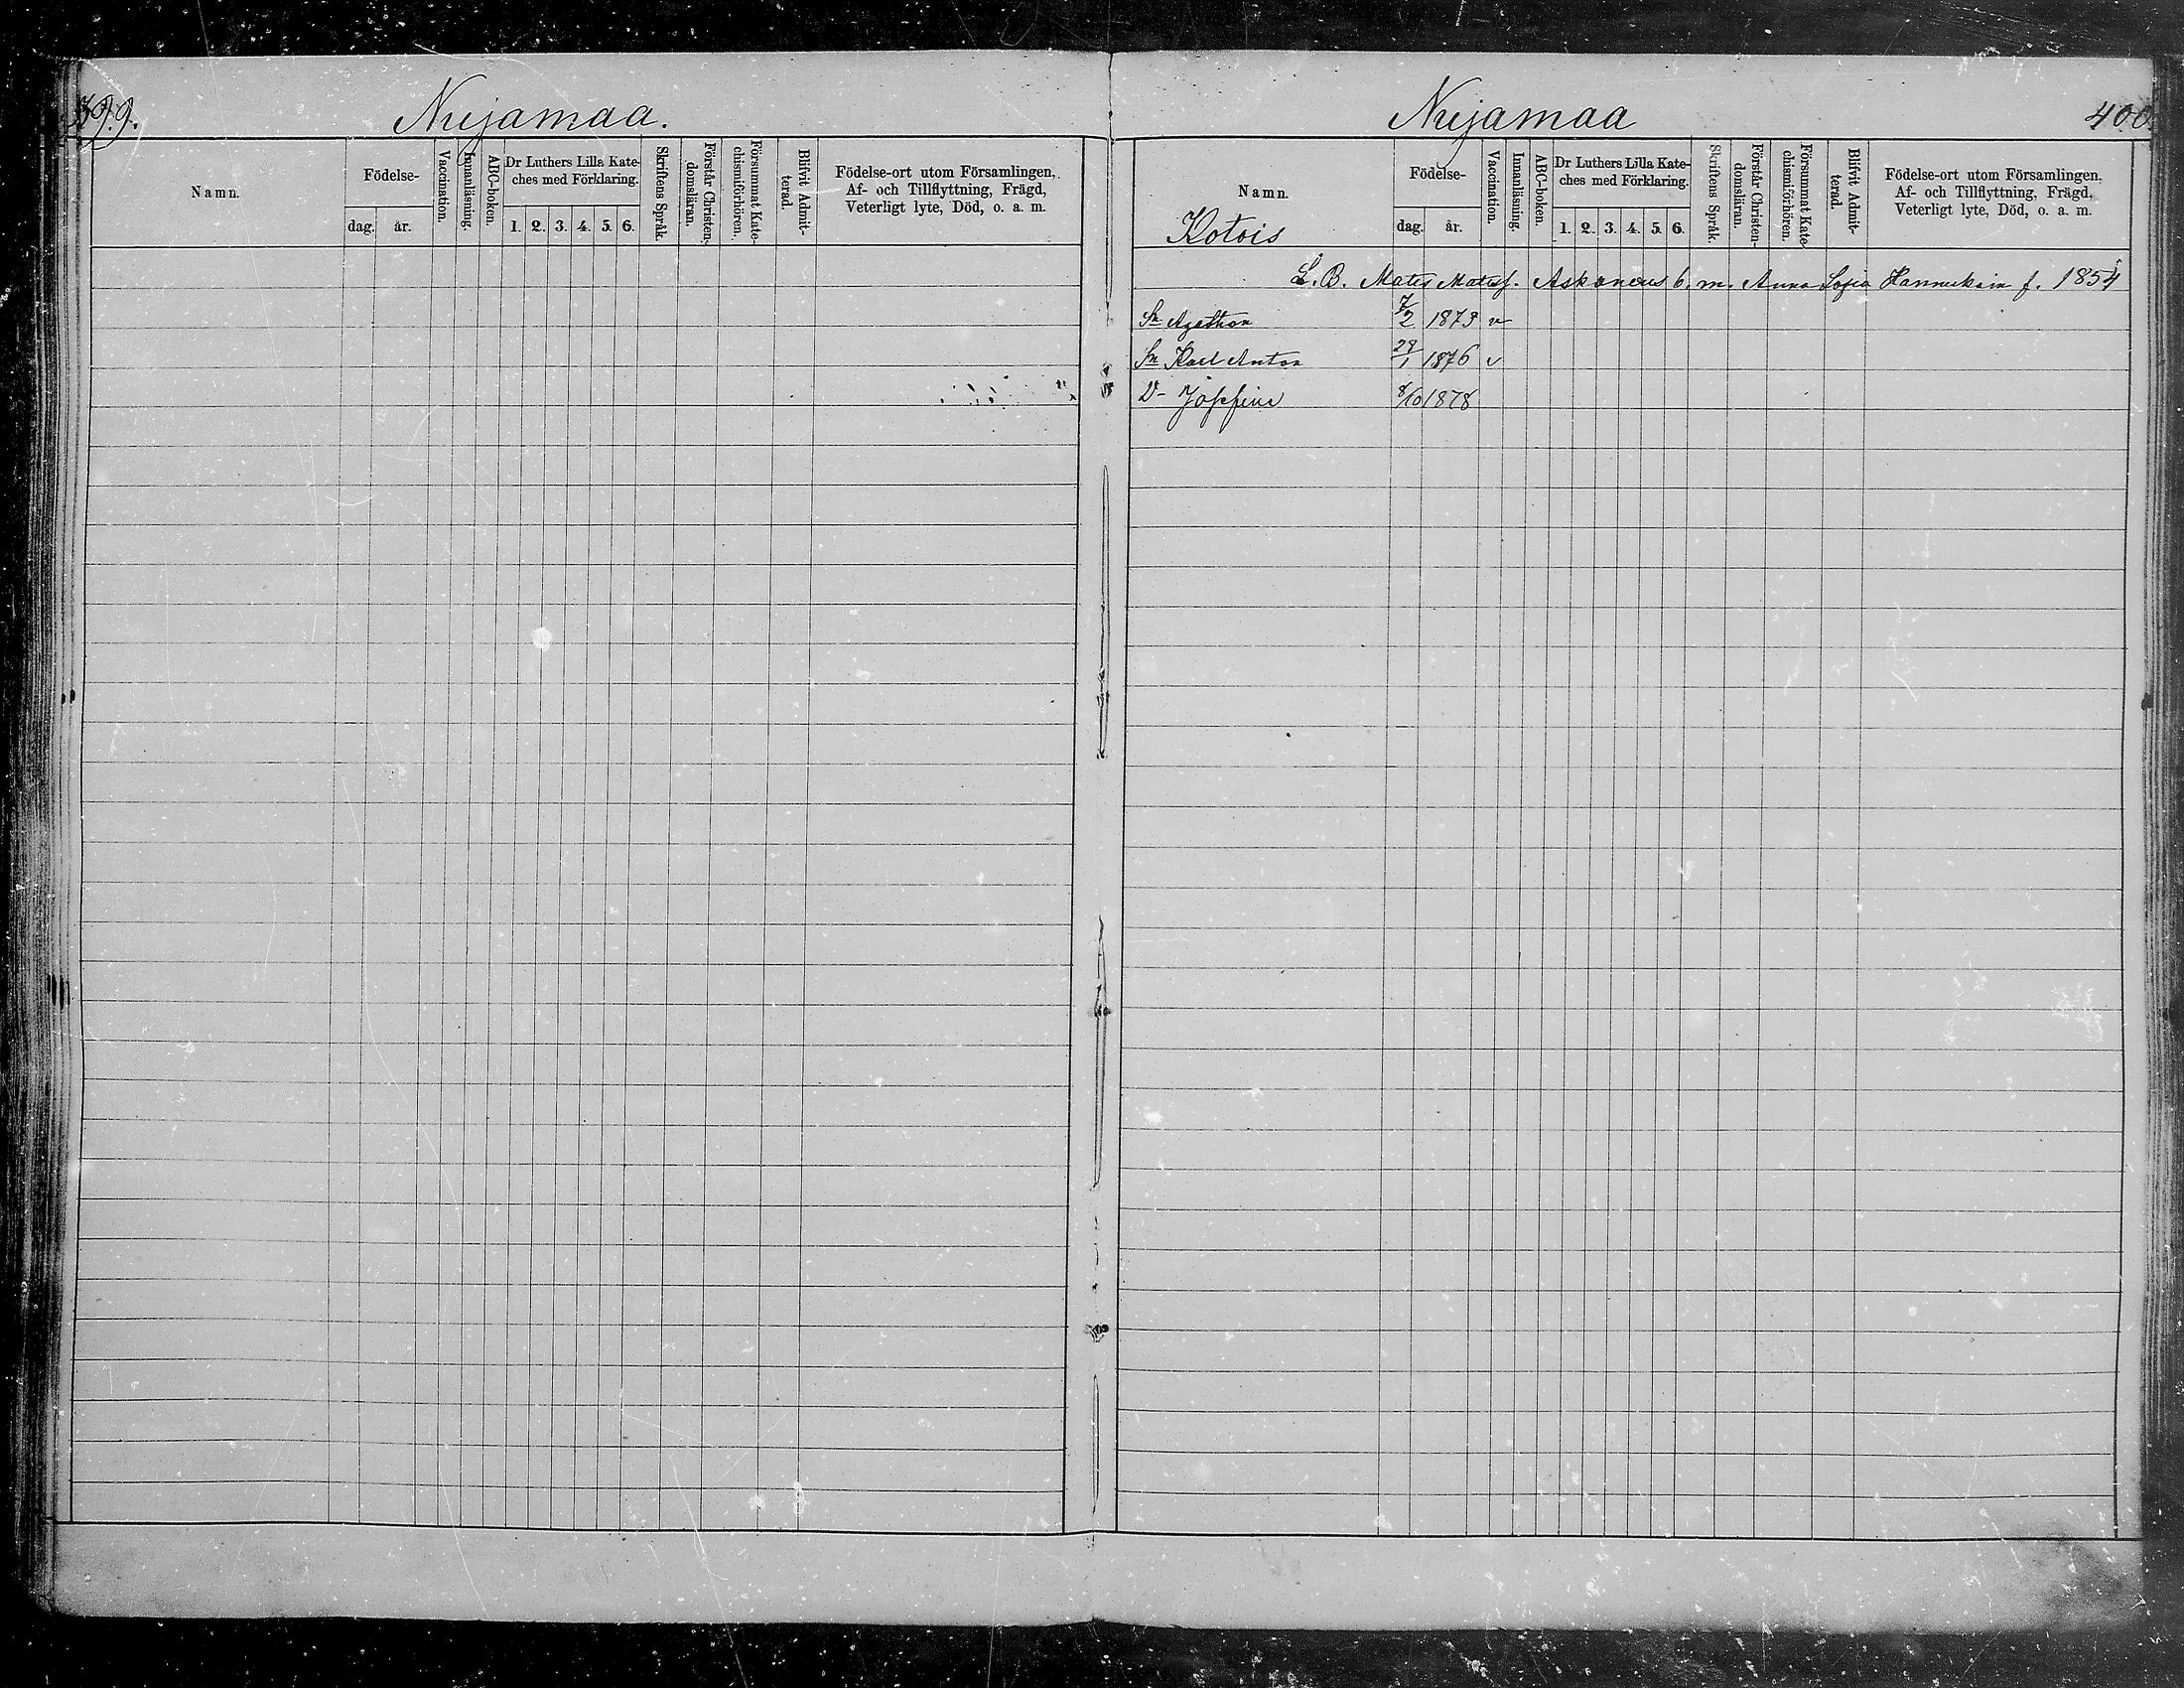 399.
Nuijamaa.
Namn.
Födelse-
dag.
år.
Vaccination.
Innanläsning.
ABC-boken.
Dr Luthers Lilla Kate-
ches med Förklaring.
1. 2. 3. 4. 5. 6.
Skriftens Språk.
Förstår Christen-
domsläran.
Försummat Kate-
chismiförhören.
Blifvit Admit-
terad.
Födelse-ort utom Församlingen,
Af- och Tillflyttning, Frägd,
Veterligt lyte, Död, o. a. m.
Nuijamaa
400.
Namn.
Kotois
Födelse-
dag.
år.
Vaccination.
Innanläsning.
ABC-boken.
Dr Luthers Lilla Kate-
ches med Förklaring.
1. 2. 3. 4. 5. 6.
Skriftens Språk.
Förstår Christen-
domsläran.
Försummat Kate-
chismiförhören.
Blifvit Admit-
terad.
Födelse-ort utom Församlingen,
Af- och Tillflyttning, Frägd,
Veterligt lyte, Död, o. a. m.
L. B. Mats Matsf. Askanens b. m. Anna Sofia Hannukain f. 1854
Sn Agathon 7/2 1873 v
Sn Karl Anton 29/1 1876 v
D- Josefina 8/10 1878